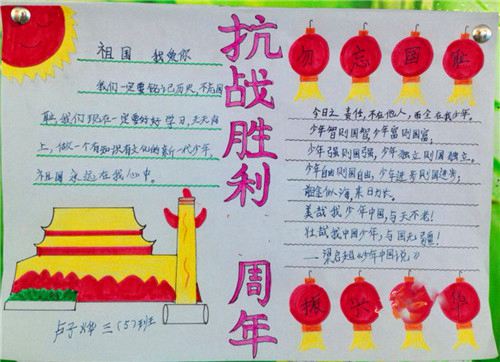 抗战胜利 周年
祖国 我爱你
我们一定要铭记历史,不忘国
耻,我们现在一定要好好学习,天天向
上,做一个有知识有文化的新一代少年,
祖国永远在我心中。
卢子烨 三(5)班
勿忘国耻
今日之责任,不在他人,而全在我少年。
少年智则国智,少年富则国富,
少年强则国强,少年独立则国独立,
少年自由则国自由,少年进步则国进步,
前途似海,来日方长。
美哉我少年中国,与天不老!
壮哉我中国少年,与国无疆!
——梁启超《少年中国说》
振兴 华